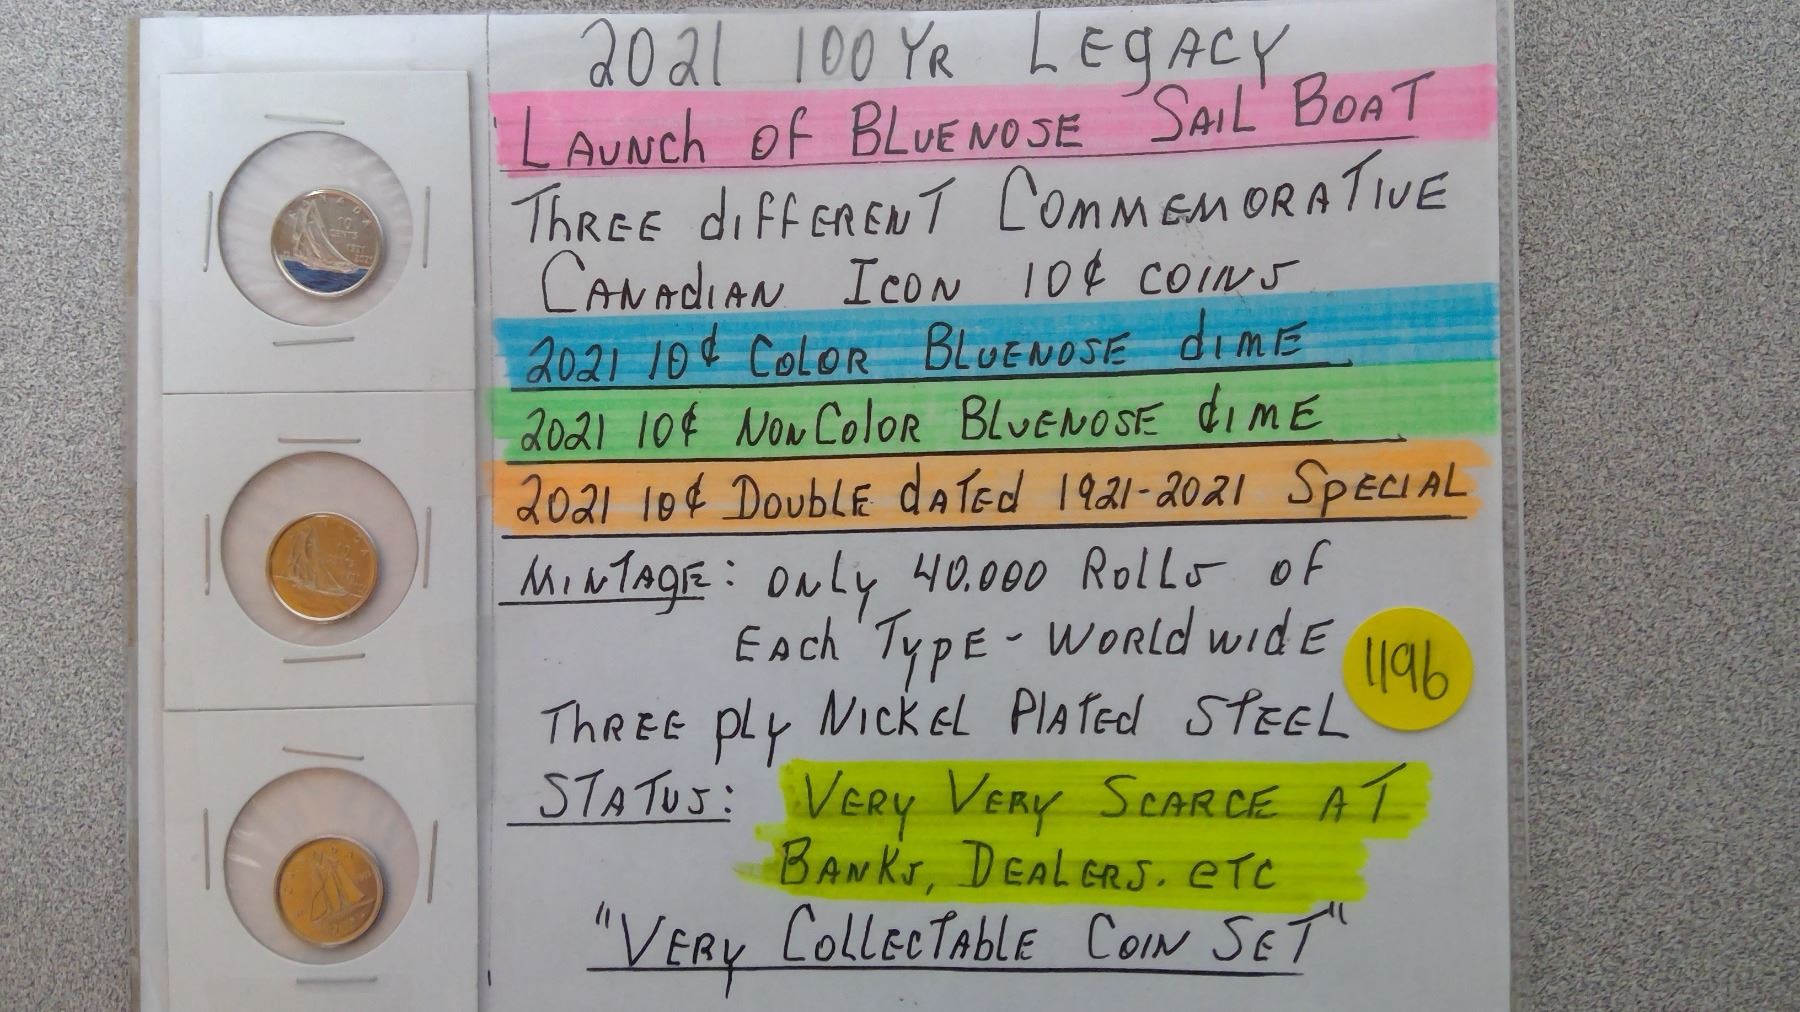 2021 100 YR LEGACY
LAUNCH OF BLUENOSE SAIL BOAT
THREE dIFFERENT COMMEMORATIVE
CANAdIAN ICON 10¢ COINS
2021 10¢ COLOR BLUENOSE dIME
2021 10¢ NON COLOR BLUENOSE dIME
2021 10¢ DOUBLE dATEd 1921-2021 SPECIAL
MINTAGE: ONLY 40.000 ROLLS OF
EACH TYPE - WORLDWIDE
1196
THREE PLY NICKEL PLATED STEEL
STATUS: VERY VERY SCARCE AT
BANKS, DEALERS. ETC
"VERY COLLECTABLE COIN SET"
CANADA
10
CENTS
1921
2021